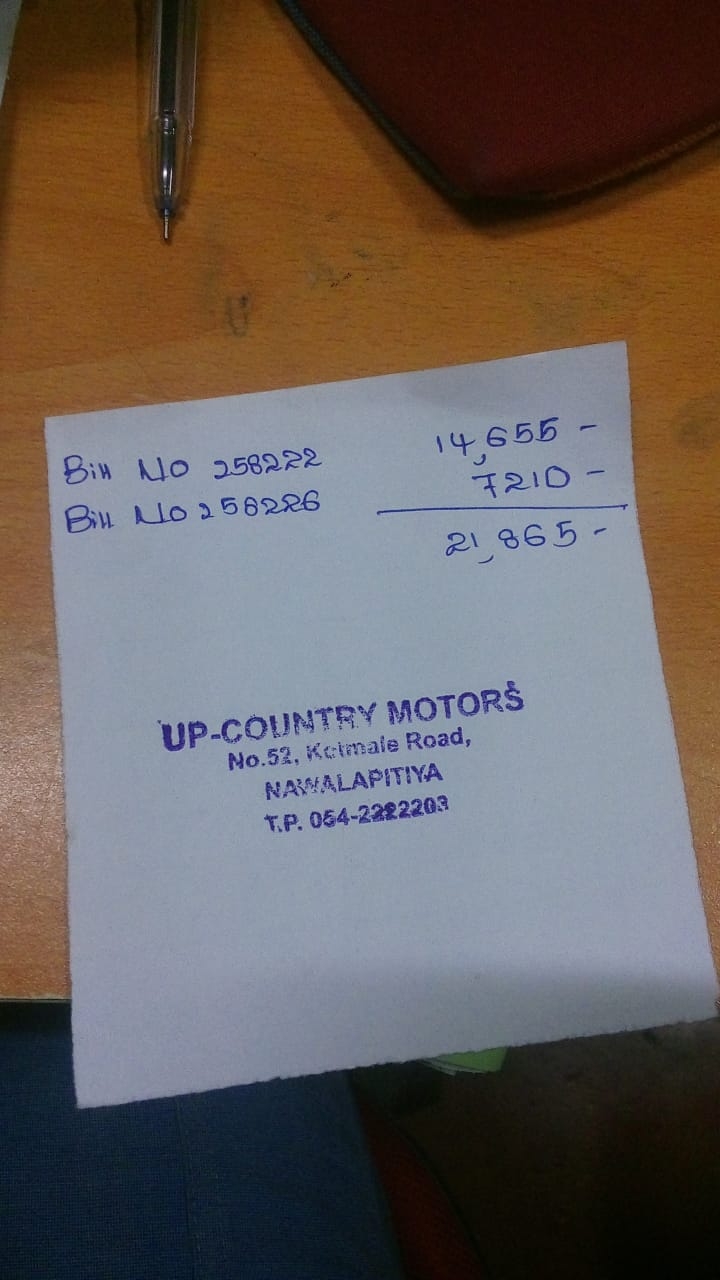 Bill No 258222 14,655 -
Bill No 258226 7210 -
21,865 -
UP-COUNTRY MOTORS
No.52, Kotmale Road,
NAWALAPITIYA
T.P. 054-2222203